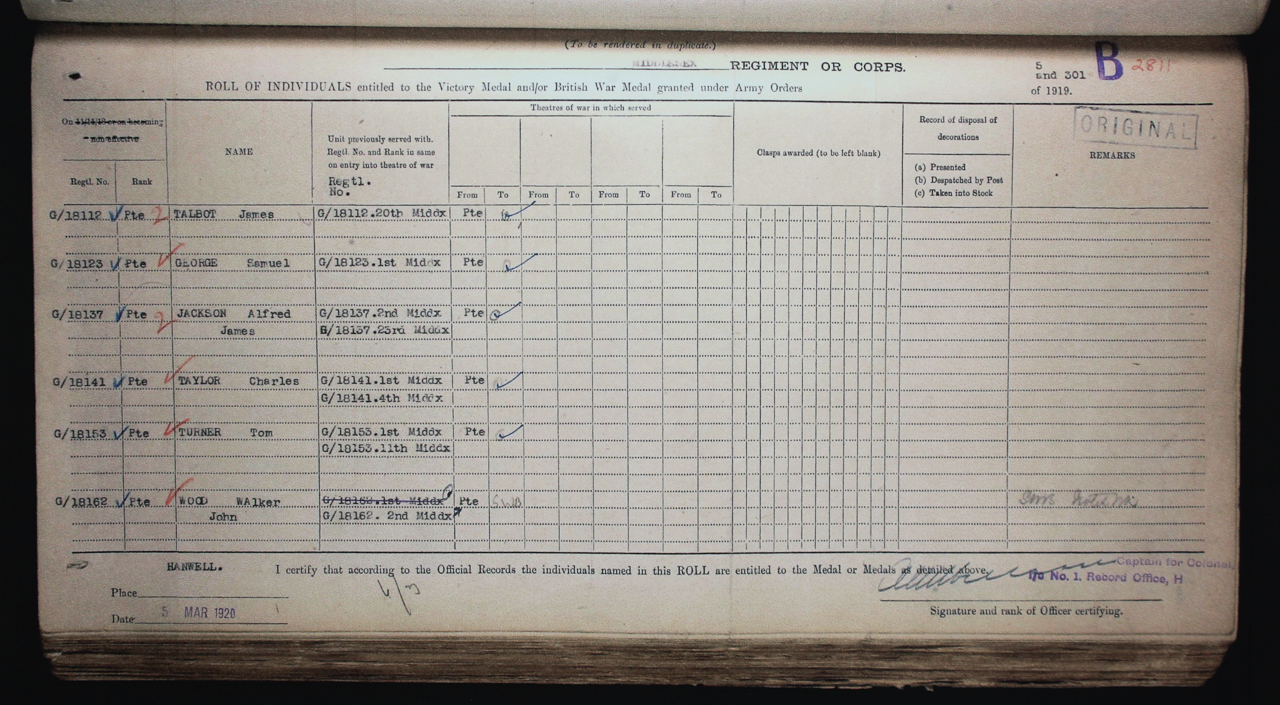 (To be rendered in duplicate.)
MIDDLESEX REGIMENT OR CORPS.
5 and 301 of 1919.
B 2811
ROLL OF INDIVIDUALS entitled to the Victory Medal and/or British War Medal granted under Army Orders
ORIGINAL
On 11/11/18 or on becoming non-effective
Regtl. No. Rank
NAME
Unit previously served with. Regtl. No. and Rank in same on entry into theatre of war
Regtl. No.
Theatres of war in which served
From To From To From To From To
Clasps awarded (to be left blank)
Record of disposal of decorations
(a) Presented
(b) Despatched by Post
(c) Taken into Stock
REMARKS
G/18112 Pte 2 TALBOT James G/18112.20th Middx Pte
G/18123 Pte GEORGE Samuel G/18123.1st Middx Pte
G/18137 Pte 2 JACKSON Alfred G/18137.2nd Middx Pte
James G/18137.23rd Middx
G/18141 Pte TAYLOR Charles G/18141.1st Middx Pte
G/18141.4th Middx
G/18153 Pte TURNER Tom G/18153.1st Middx Pte
G/18153.11th Middx
G/18162 Pte WOOD WAlker G/18162.1st Middx Pte
John G/18162. 2nd Middx
HANWELL.
I certify that according to the Official Records the individuals named in this ROLL are entitled to the Medal or Medals as detailed above.
Captain for Colonel,
No. 1. Record Office, H
Place
Date 5 MAR 1920
Signature and rank of Officer certifying.